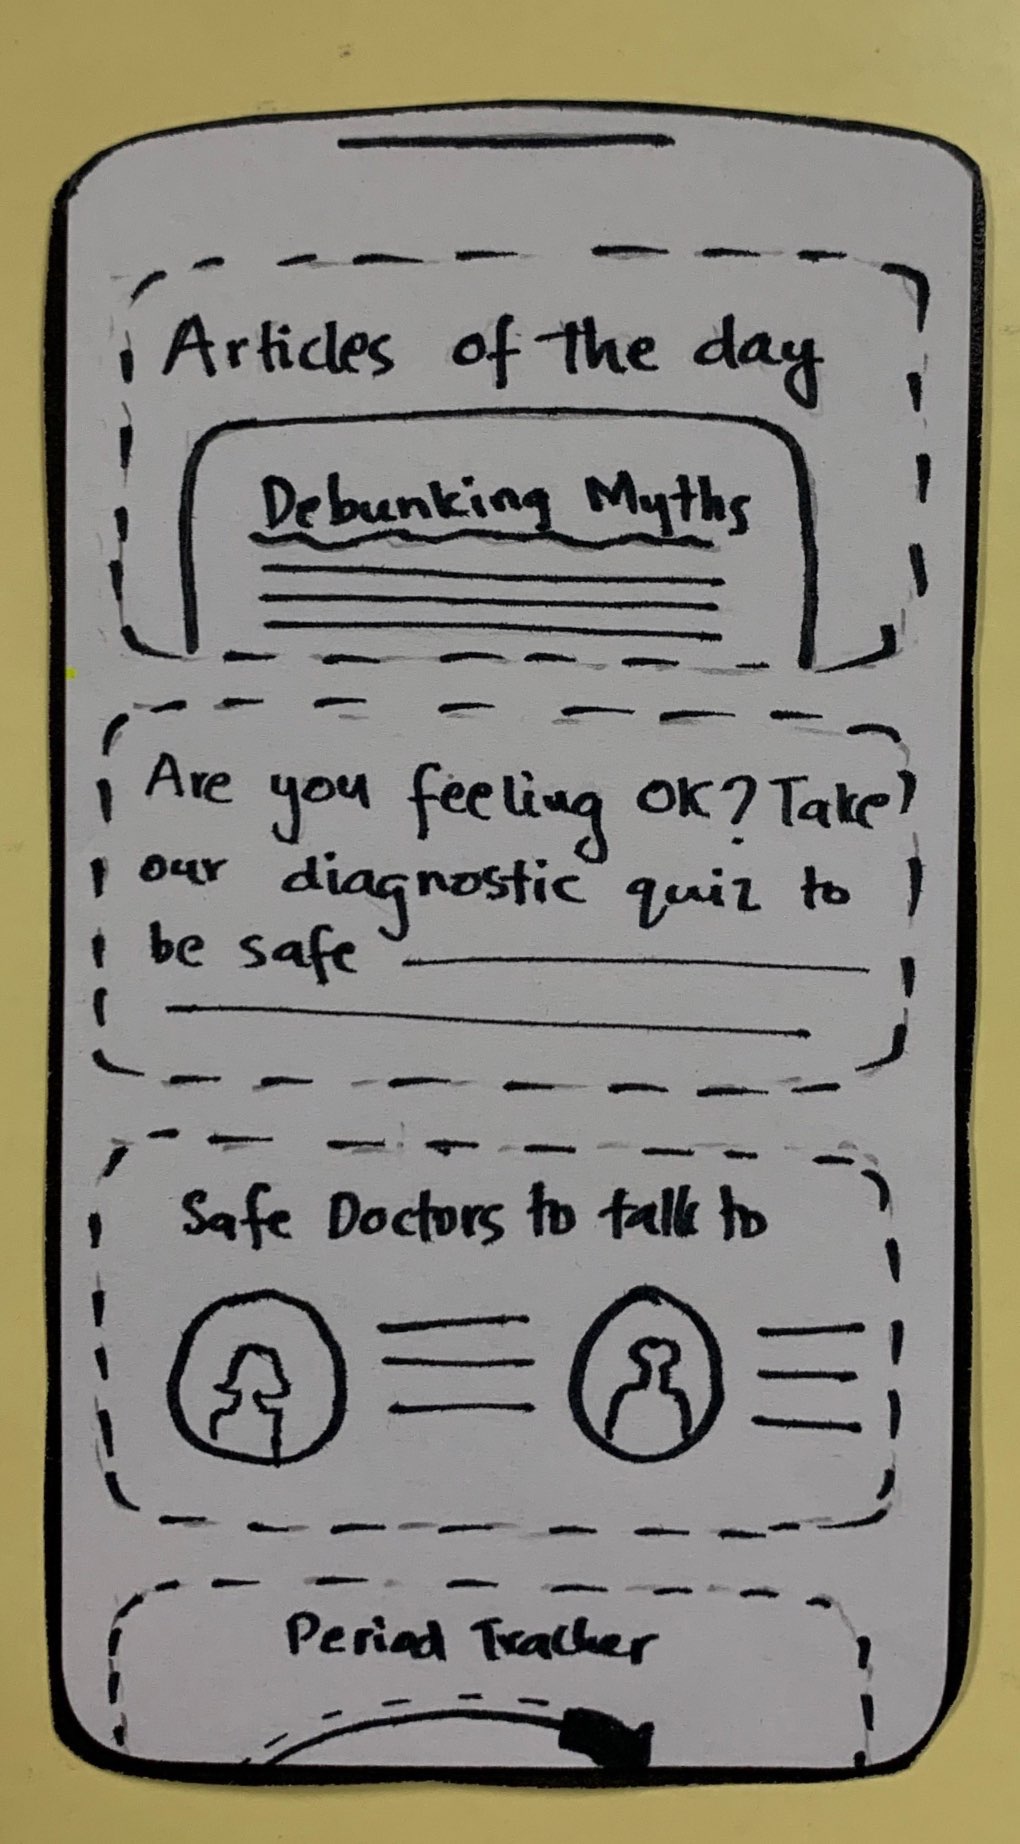 Articles of the day
Debunking Myths
Are you feeling OK? Take
our diagnostic quiz to
be safe
Safe Doctors to talk to
Period Tracker